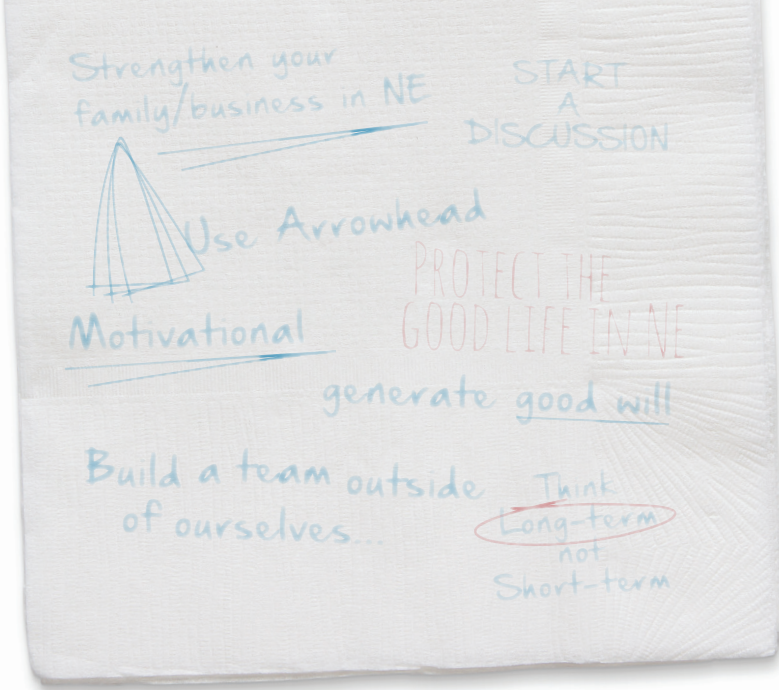 Strengthen your
family/business in NE
START
A
DISCUSSION
Use Arrowhead
PROTECT THE
GOOD LIFE IN NE
Motivational
generate good will
Build a team outside
of ourselves...
Think
Long-term
not
Short-term